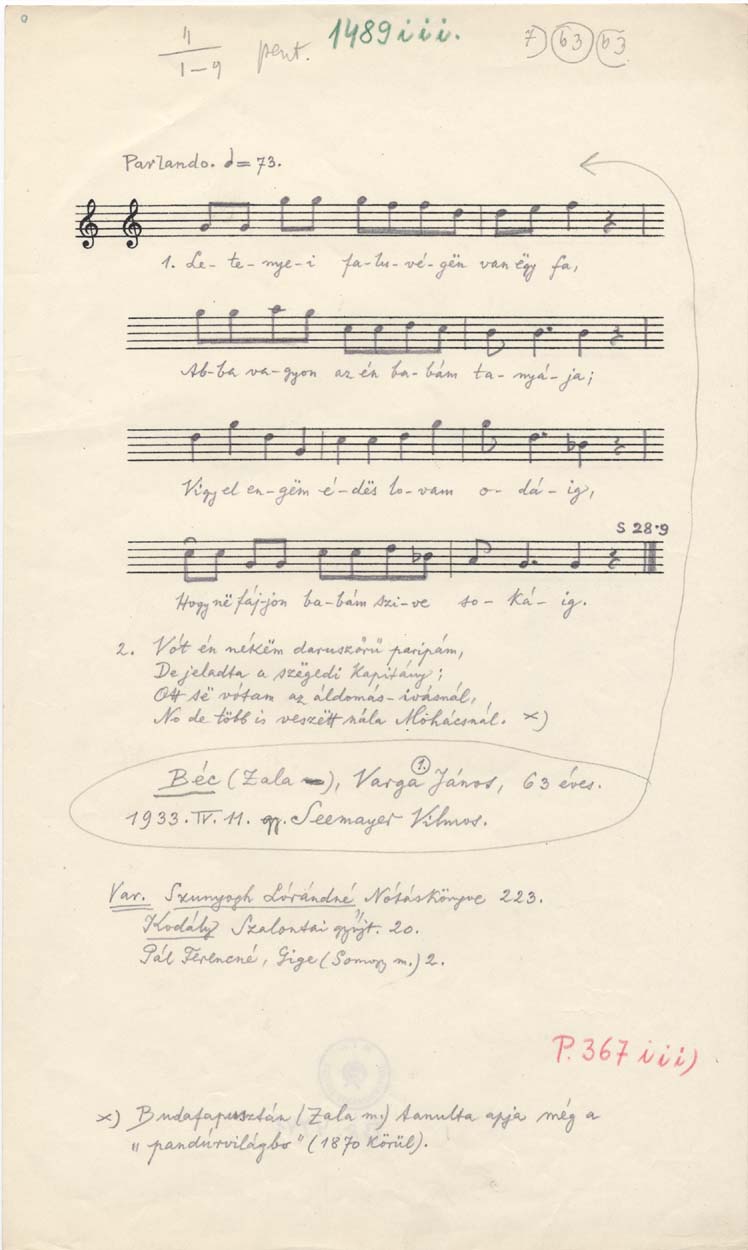 11
1–9
pent.
1489 iii.
7) (b3) (b3
Parlando. = 73.
1. Le- te- nye- i fa-lu- vé- gën van ëgy fa,
Ab-ba va-gyon az én ba-bám ta- nyá- ja;
Vigy el en-gëm é-dës lo-vam o- dá- ig,
S 28·9
Hogy në fáj-jon ba-bám szi-ve so- ká- ig.
2. Vót én nékëm daruszörü paripám,
De jeladta a szëgedi kapitány;
Ott së vótam az áldomás-ivásnál,
No de több is veszëtt nála Móhácsnál. x)
Béc (Zala), Varga 1. János, 63 éves.
1933. IV. 11. gy. Seemayer Vilmos.
Var. Szunyogh Lórándné Nótáskönyve 223.
Kodály Szalontai gyűjt. 20.
Pál Ferencné, Gige (Somogy m.) 2.
P. 367 iii)
x) Budafapusztán (Zala m.) tanulta apja még a
„pandúrvilágbo" (1870 körül).